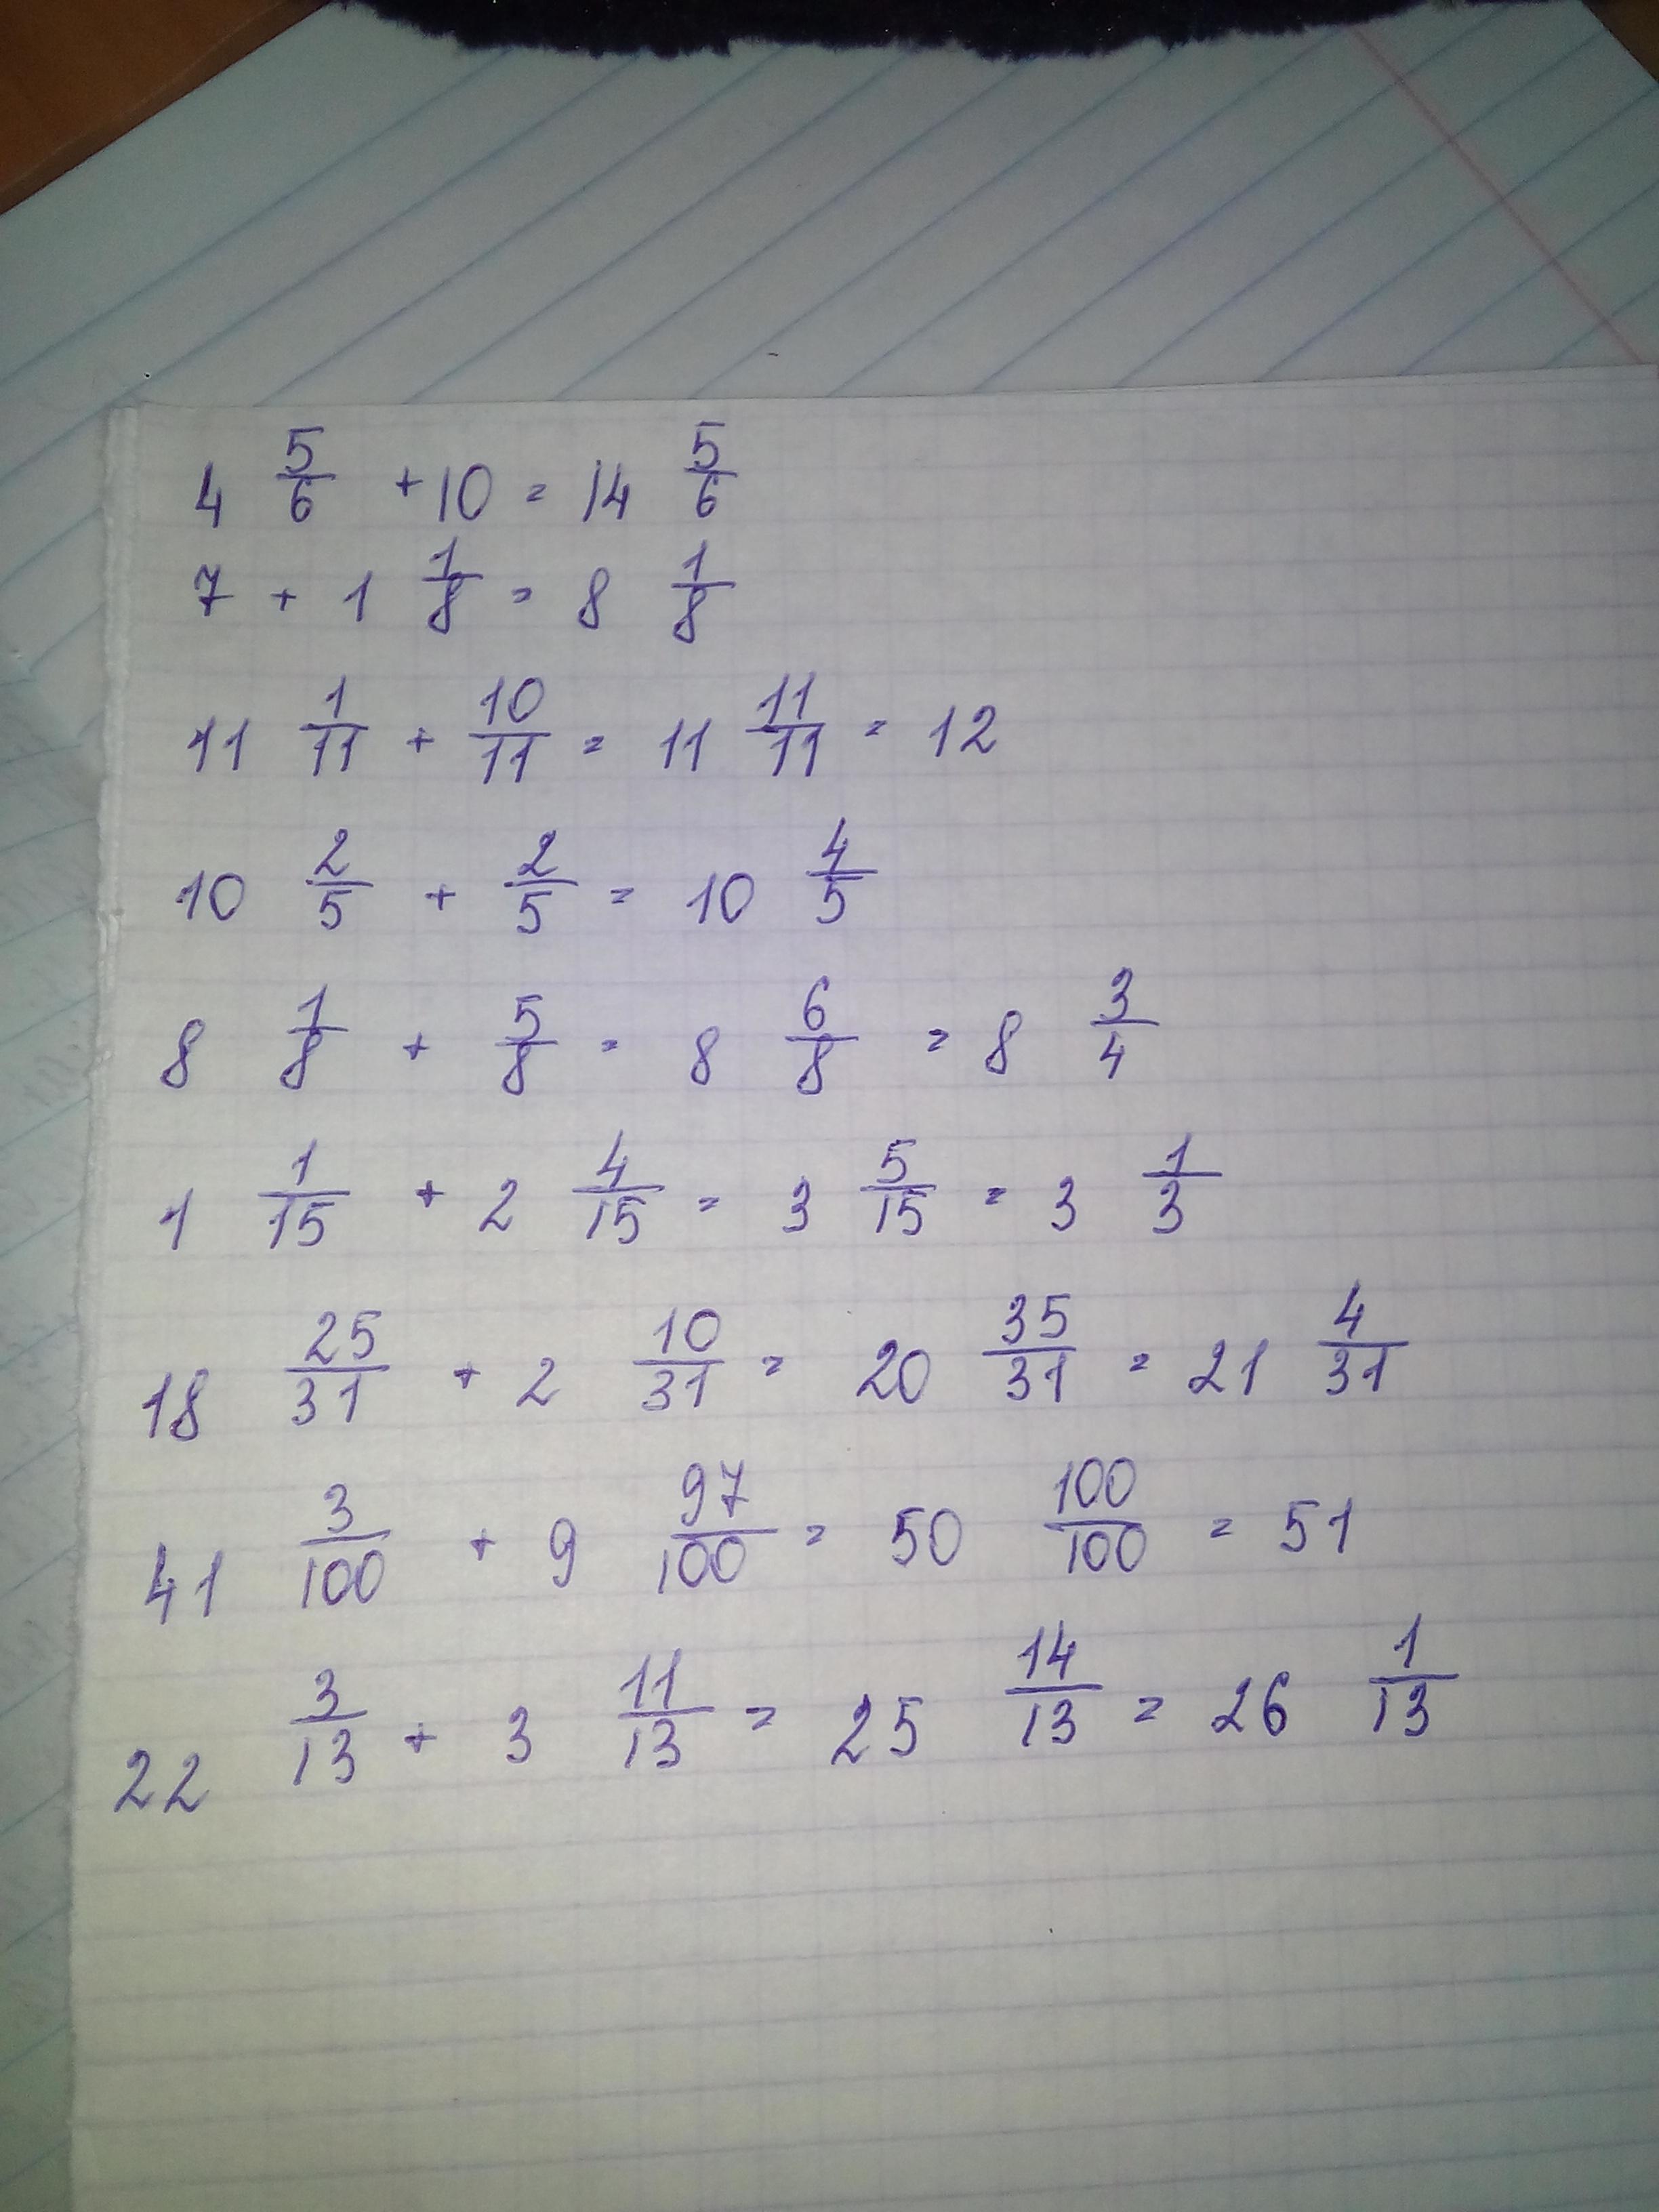 4 5/6 + 10 = 14 5/6
7 + 1 1/8 = 8 1/8
11 1/11 + 10/11 = 11 11/11 = 12
10 2/5 + 2/5 = 10 4/5
8 1/8 + 5/8 = 8 6/8 = 8 3/4
1 1/15 + 2 4/15 = 3 5/15 = 3 1/3
18 25/31 + 2 10/31 = 20 35/31 = 21 4/31
41 3/100 + 9 97/100 = 50 100/100 = 51
22 3/13 + 3 11/13 = 25 14/13 = 26 1/13